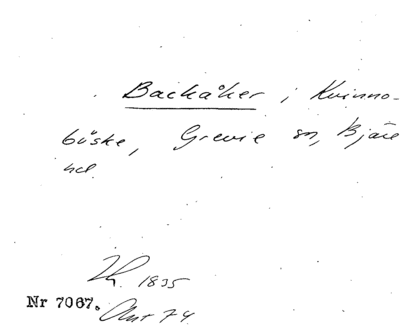 Backåker i Kvinno-
böske, Grevie sn, Bjäre
hd
Lh. 1835
Nr 7067. Akt 74